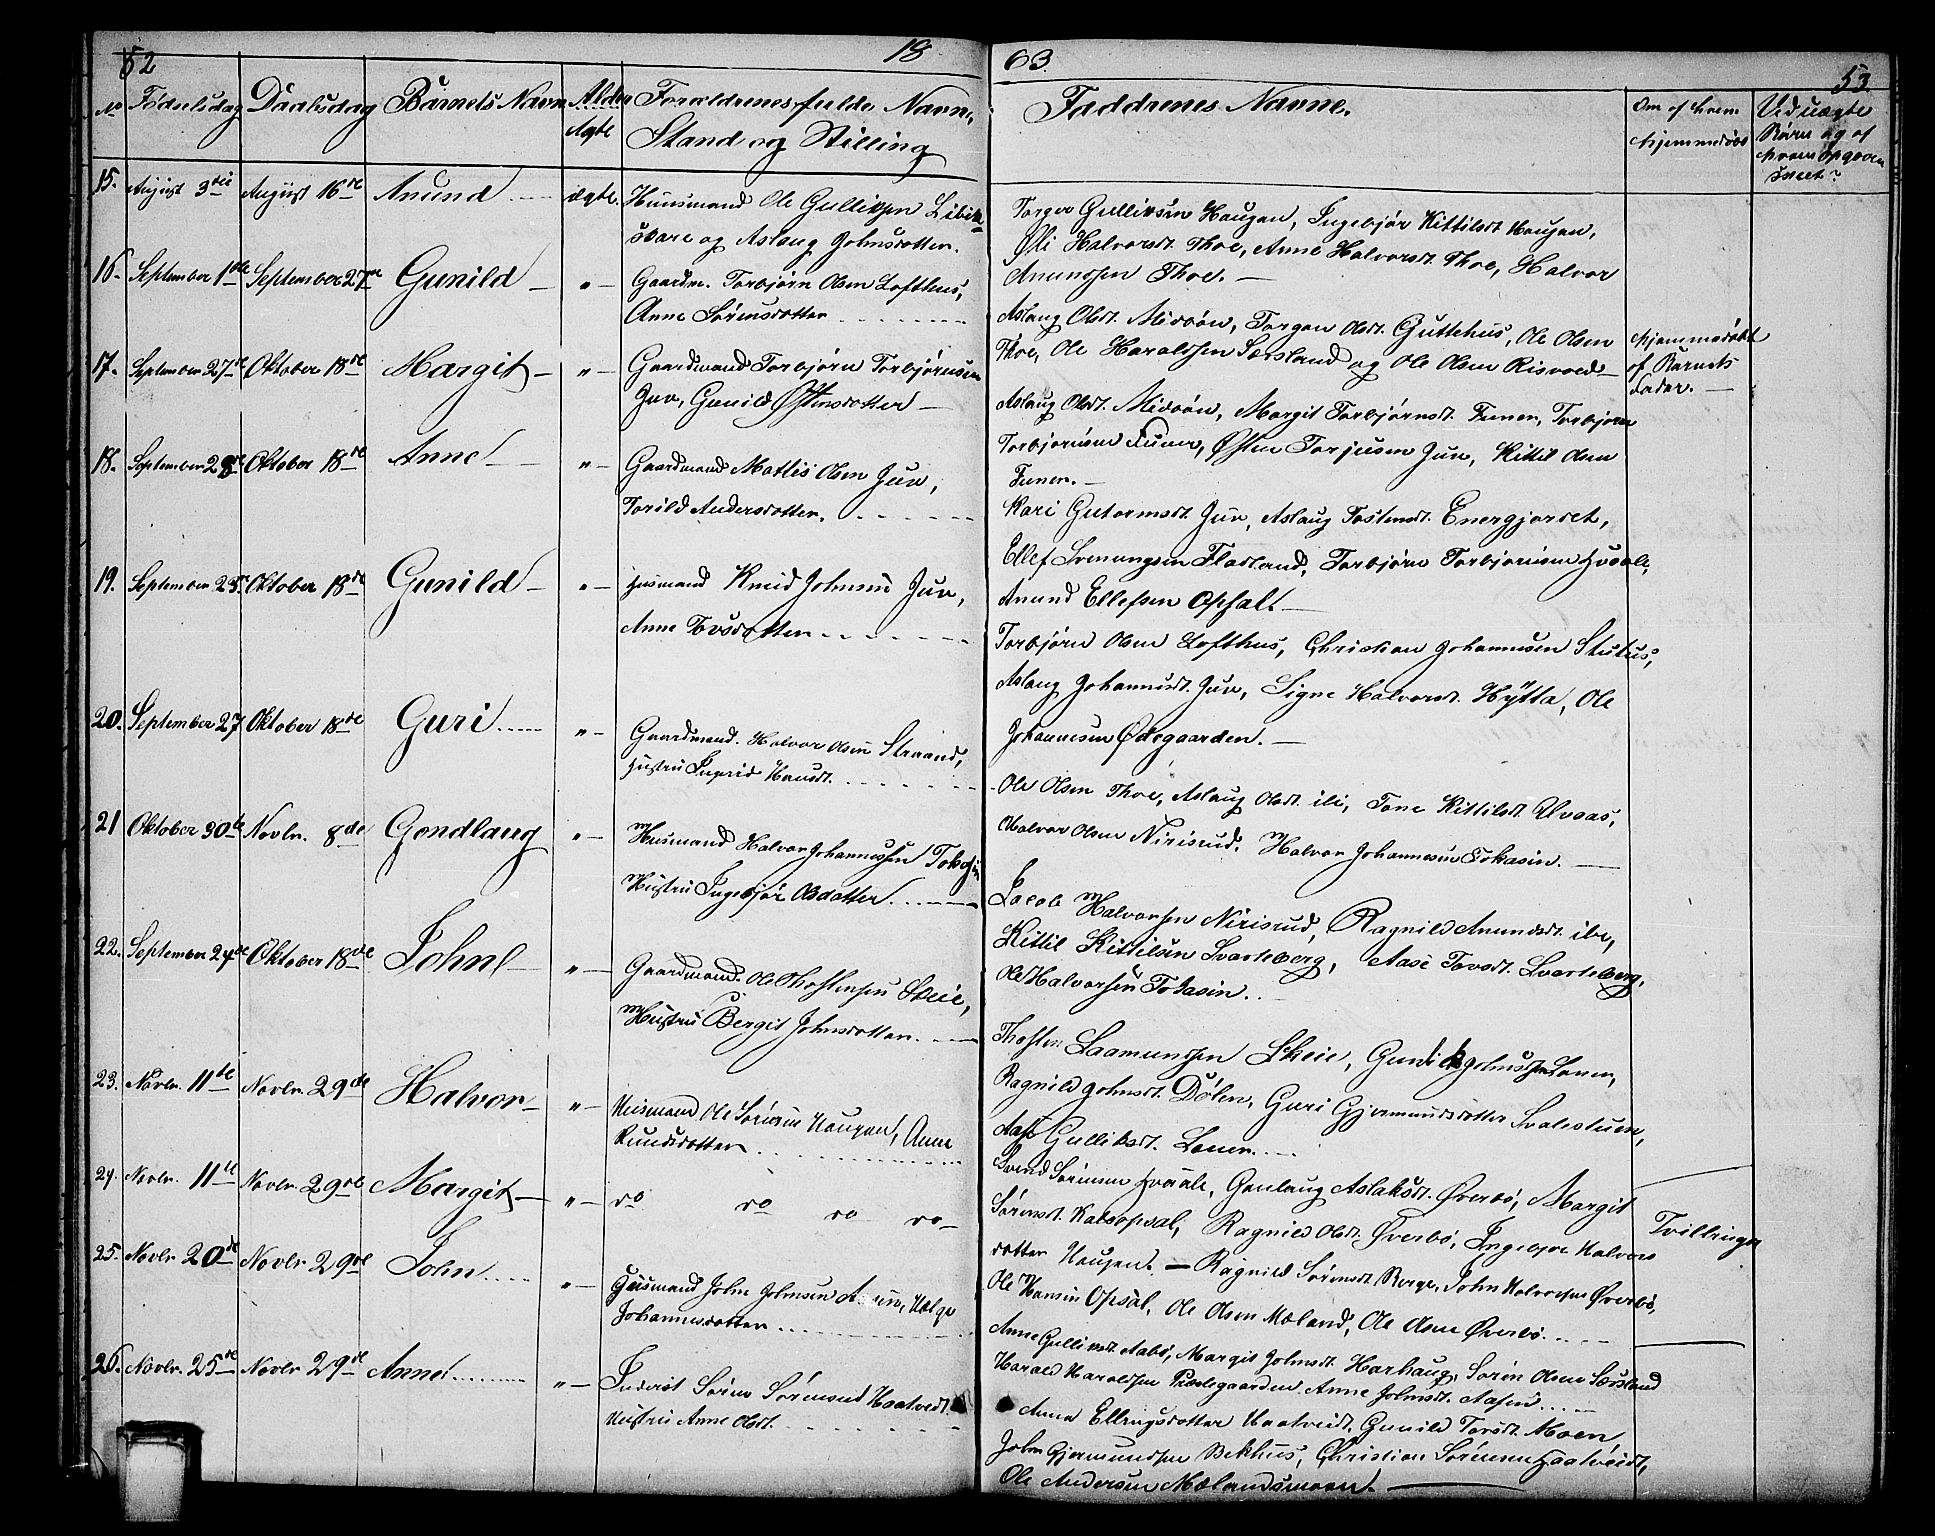 52
18
63
53
No
Fødselsdag
Daabsdag
Barnets Navn
Alder
Ægte
Forældrenes fulde Navn,
Stand og Stilling
Faddrenes Navne.
Om af hvem
hjemmedøbt
Ved uægte
Børn og af
hvem opgiven
15. August 3die August 16de Anund ægte. Huusmand Ole Gulliksen
skare og Aslaug Johnsdatter.
Torger Gulliksen Haugan, Ingebjør Kittilsdt. Haugan,
Øli Halvorsdt. Thoe, Anne Halvorsdt. Thoe, Halvor
Anundsen Thoe. —
16. September 1ste September 27de Gunild — " — Gaardm. Torbjørn Olsen Lofthus,
Anne Sørensdotter
Aslaug Olsdt. Midbøn, Torgon Olsdt. Guttehus, Ole Olsen
Thoe, Ole Haroldsen Sørsland og Ole Olsen Risvold
hjemmedøbt
af Barnets
Fader. —
17. September 27de Oktober 18de Margit — " — Gaardmand Torbjørn Torbjørnsen
Juv, Gunild Østensdotter —
Aslaug Olsdt. Midbøn, Margit Torbjørnsdt. Funer, Torbjørn
Torbjørnsen Funer, Østen Torjusen Juv, Kittil Olsen
Funer. —
18. September 28de Oktober 18de Anne — " — Gaardmand Mattis Olsen Juv,
Torild Andersdotter.
Kari Gutormsdt. Juv, Aslaug Tostensdt. Energjordet,
Ellef Svenungsen Flatland, Torbjørn Torbjørnsen Hvaale,
Anund Ellefsen Opsalt —
19. September 25. Oktober 18de Gunild — " — Husmand Knud Johnsen Juv,
Anne Tovsdotter
Torbjørn Olsen Lofthus, Christian Johannesen Stutus,
Aslaug Johannisdt. Juv, Signe Halvorsdt. Hÿtta, Ole
Johannesen Ødegaarden. —
20. September 27 Oktober 18de Guri " — Gaardmand. Halvor Olsen Straand,
Hustru Ingrid Hansdt.
Ole Olsen Thoe, Aslaug Olsdt. ibi, Tone Kittilsdt. Uvaas,
Halvor Olsen Nirisrud, Halvor Johannesen Tokasin. —
21 Oktober 30te Novbr. 8de Gondlaug " — Husmand Halvor Johannessen
Hustru Ingebjør Olsdatter.
Jacob Halvorsen Nirisrud, Ragnild Anundsdt. ibi,
Kittil Kittilsen Svarteberg, Aase Tovsdt. Svarteberg,
Ole Halvorsen Tokasin.
22. September 24de Oktober 18de John — " — Gaardmand. Ole Thostensen Skeie,
Hustru Bergit Johnsdotter. —
Thosten Saamundsen Skeie,
Ragnild Johnsdt. Dølen, Guri Gjermundsdotter
Aase Gulliksdt. Loner.
23. Novbr. 11te Novbr. 29de Halvor — " — Huismand Ole Sørensen Haugan, Anne
Knudsdotter
Svend Sørensen Hvaale, Gonlaug Aslaksdt. Øverbø, Margit
Sørensdt. Ragnild Olsdt. Øverbø, Ingebjør Halvors
dotter Haugan. — Ragnild Sørensdt. Berge, John Halvorsen Øverbø,
24. Novbr. 11te Novbr. 29de Margit — " — do do do do —
Ole Hansen Opsal, Ole Olsen Mæland, Ole Olsen Øverbø.
Tvillinger
25. Novbr 20de Novbr 29de John " — Husmand John Johnsen Helge
Johannesdotter
Anne Gulliksdt. Aabø, Margit Johnsdt. Harhaug, Søren Olsen Sørsland
Harald Haroldsen Anne Johnsdt. Aasen
26. Novbr. 25de Novbr 29de Anne " — Inderst Søren Sørensen Haatvedt
Hustru Anne Olsdt.
Anne Ellingsdotter Haatveidt, Gunild Torsdt. Moen
John Gjermundsen Bekhus, Christian Sørensen Haatveidt,
Ole Andersen Mælandsmoen —